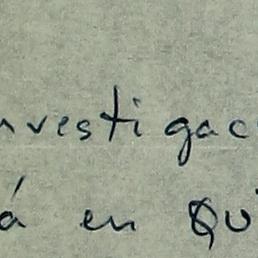 nvestigac
á en Qu